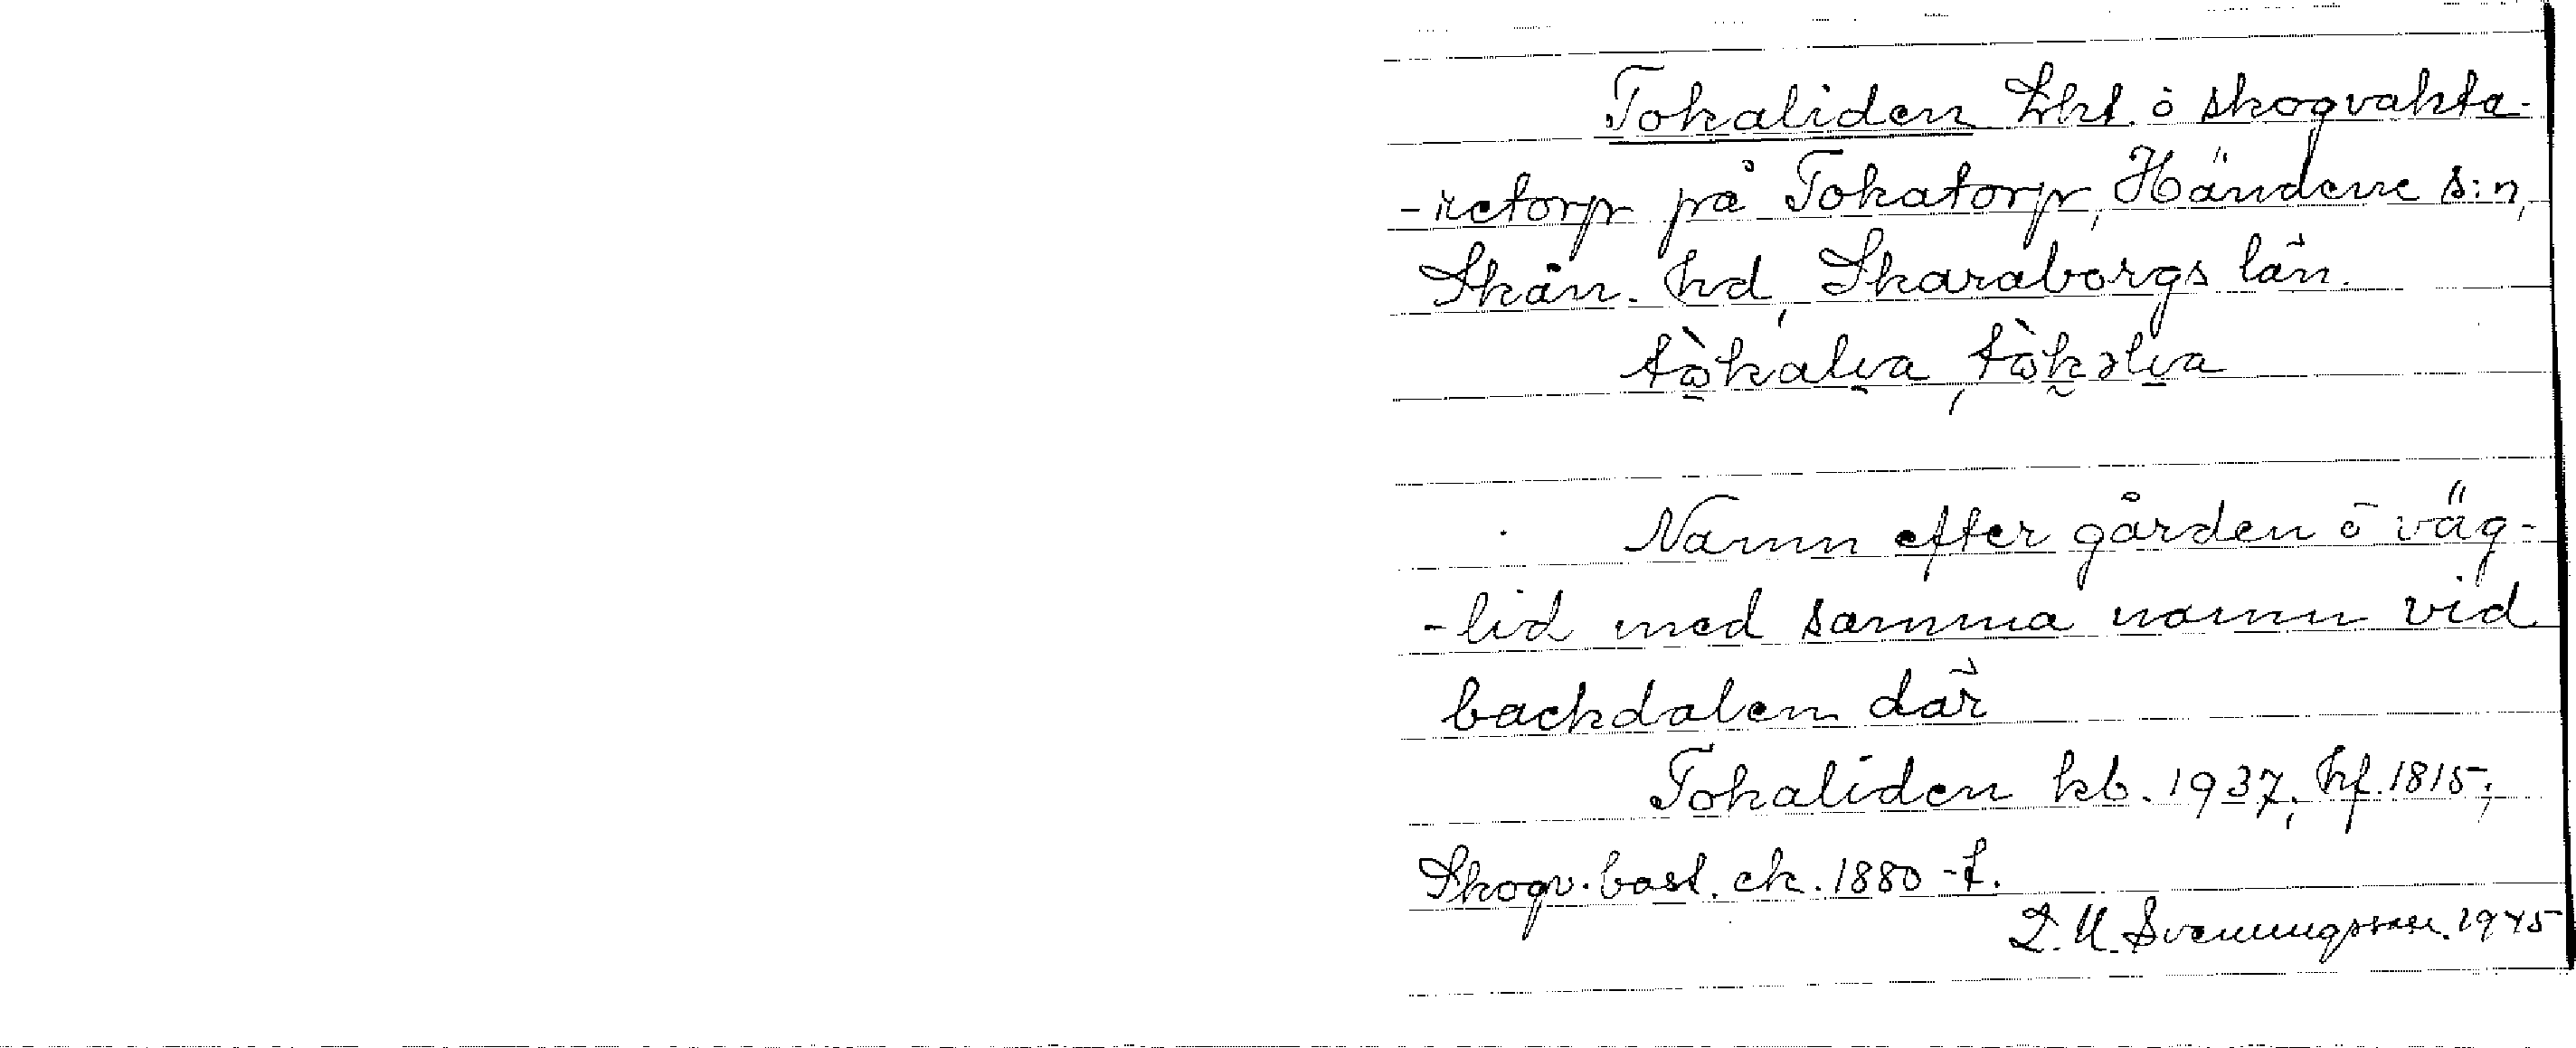 Tokaliden Lht. o skogvakta-
-retorp på Tokatorp, Händene s:n,
Skån. hd, Skaraborgs län.
tòkalıa, tòkəlıa
Namn efter gården o väg-
-lid med samma namn vid
backdalen där
Tokaliden kb. 1937; hf. 1815;
Skogv. bost. ek. 1880 -t.
Svenungsson. 1945